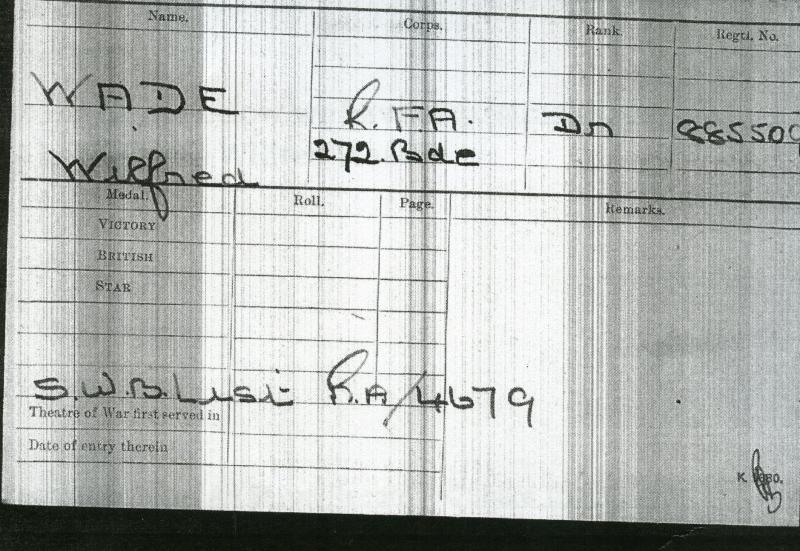 Name. Corps. Rank. Regtl. No.
WADE R.F.A. Dr 885509
Wilfred 272. Bde
Medal. Roll. Page. Remarks.
VICTORY
BRITISH
STAR
S.W.B. List R.A/4679
Theatre of War first served in
Date of entry therein
K.